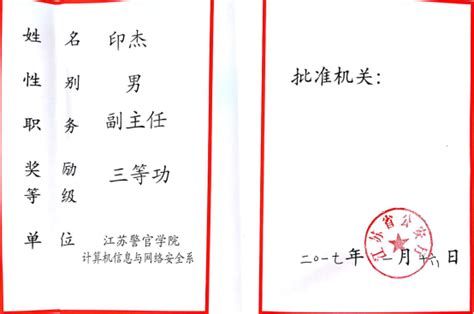 姓名 印杰
性别 男
职务 副主任
奖励等级 三等功
单位 江苏警官学院
计算机信息与网络安全系
批准机关:
江苏省公安厅
二〇一七年 月十六日